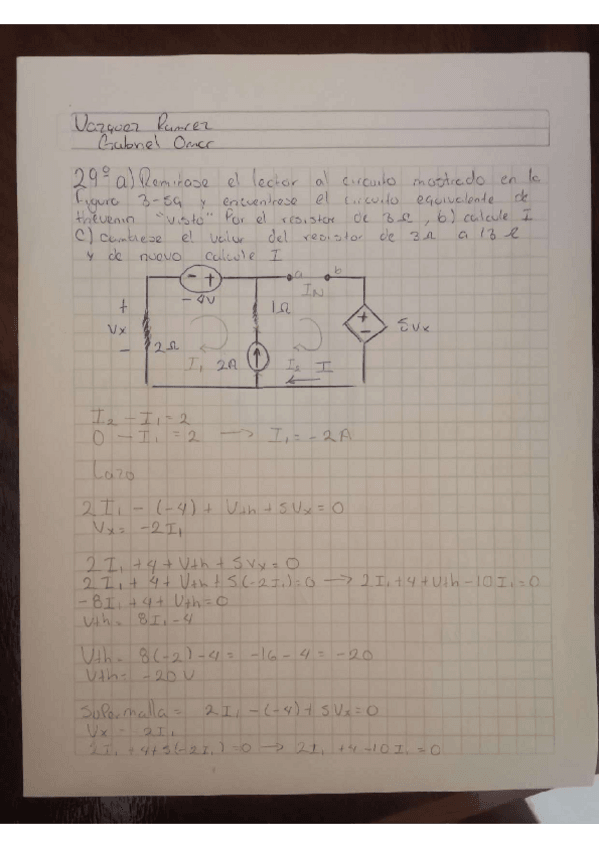 Vazquez Ramirez
Gabriel Omar
29° a) Remitase el lector al circuito mostrado en la
figura 3-59 y encuentrese el circuito equivalente de
thevenin "visto" Por el resistor de 3Ω, b) calcule I
C) cambiese el valor del resistor de 3Ω a 13Ω
y de nuevo calcule I
- +
- 4V
a
b
IN
+
Vx
-
2Ω
I1
1Ω
2A
I2
I
+
-
5Vx
I2 - I1 = 2
0 - I1 = 2 → I1 = -2A
Lazo
2I1 - (-4) + Vth + 5Vx = 0
Vx = -2I1
2I1 + 4 + Vth + 5Vx = 0
2I1 + 4 + Vth + 5(-2I1) = 0 → 2I1 + 4 + Vth - 10I1 = 0
-8I1 + 4 + Vth = 0
Vth = 8I1 - 4
Vth = 8(-2) - 4 = -16 - 4 = -20
Vth = -20 V
Supermalla = 2I1 - (-4) + 5Vx = 0
Vx = 2I1
2I1 + 4 + 5(-2I1) = 0 → 2I1 + 4 - 10I1 = 0